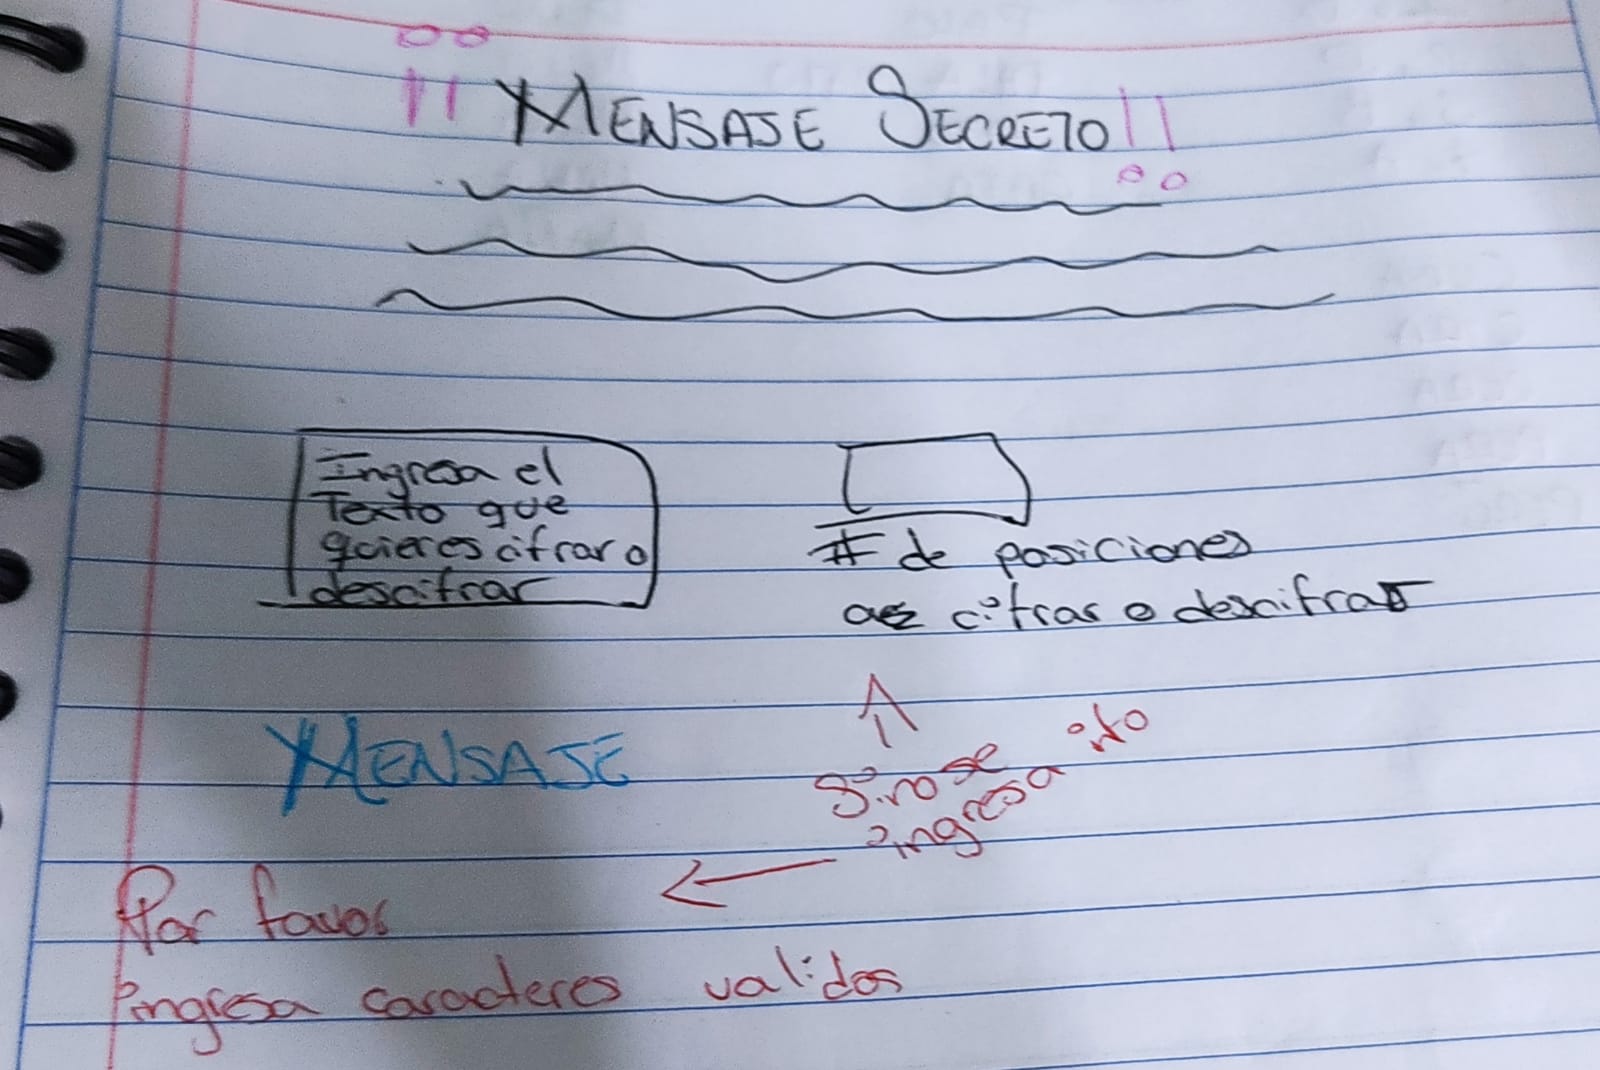 ¡¡MENSAJE SECRETO!!
Ingresa el
Texto que
quieres cifrar o
descifrar
# de posiciones
a cifrar o descifrar
MENSAJE
Si no se
ingresa ito
Por favor
ingresa caracteres validos